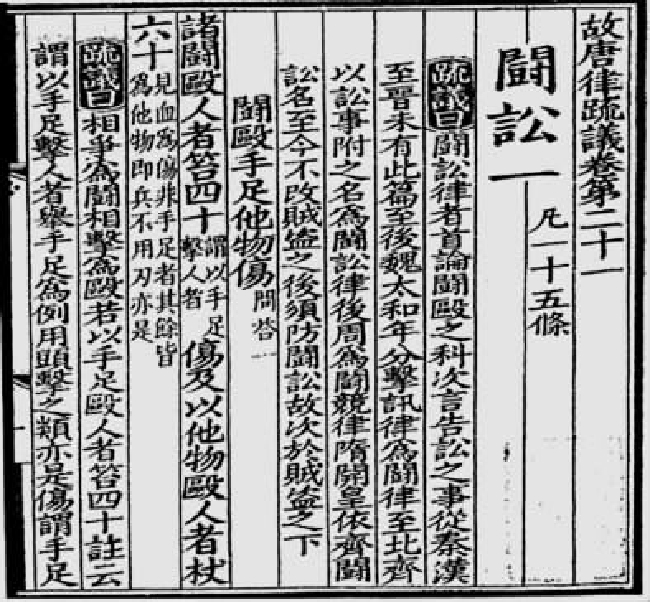 故唐律疏議卷第二十一
闘訟一 凡一十五條
疏議曰闘訟律者首論闘毆之科次言告訟之事從秦漢
至晉未有此篇至後魏太和年分擊訊律為闘律至北齊
以訟事附之名為闘訟律後周為闘競律隋開皇依齊闘
訟名至今不改賊盜之後須防闘訟故次於賊盜之下
闘毆手足他物傷 問荅一
諸闘毆人者笞四十 謂以手足擊人者 傷及以他物毆人者杖
六十 見血為傷非手足者其餘皆為他物即兵不用刃亦是
疏議曰相爭為闘相擊為毆若以手足毆人者笞四十註云
謂以手足擊人者舉手足為例用頭擊之類亦是傷謂手足